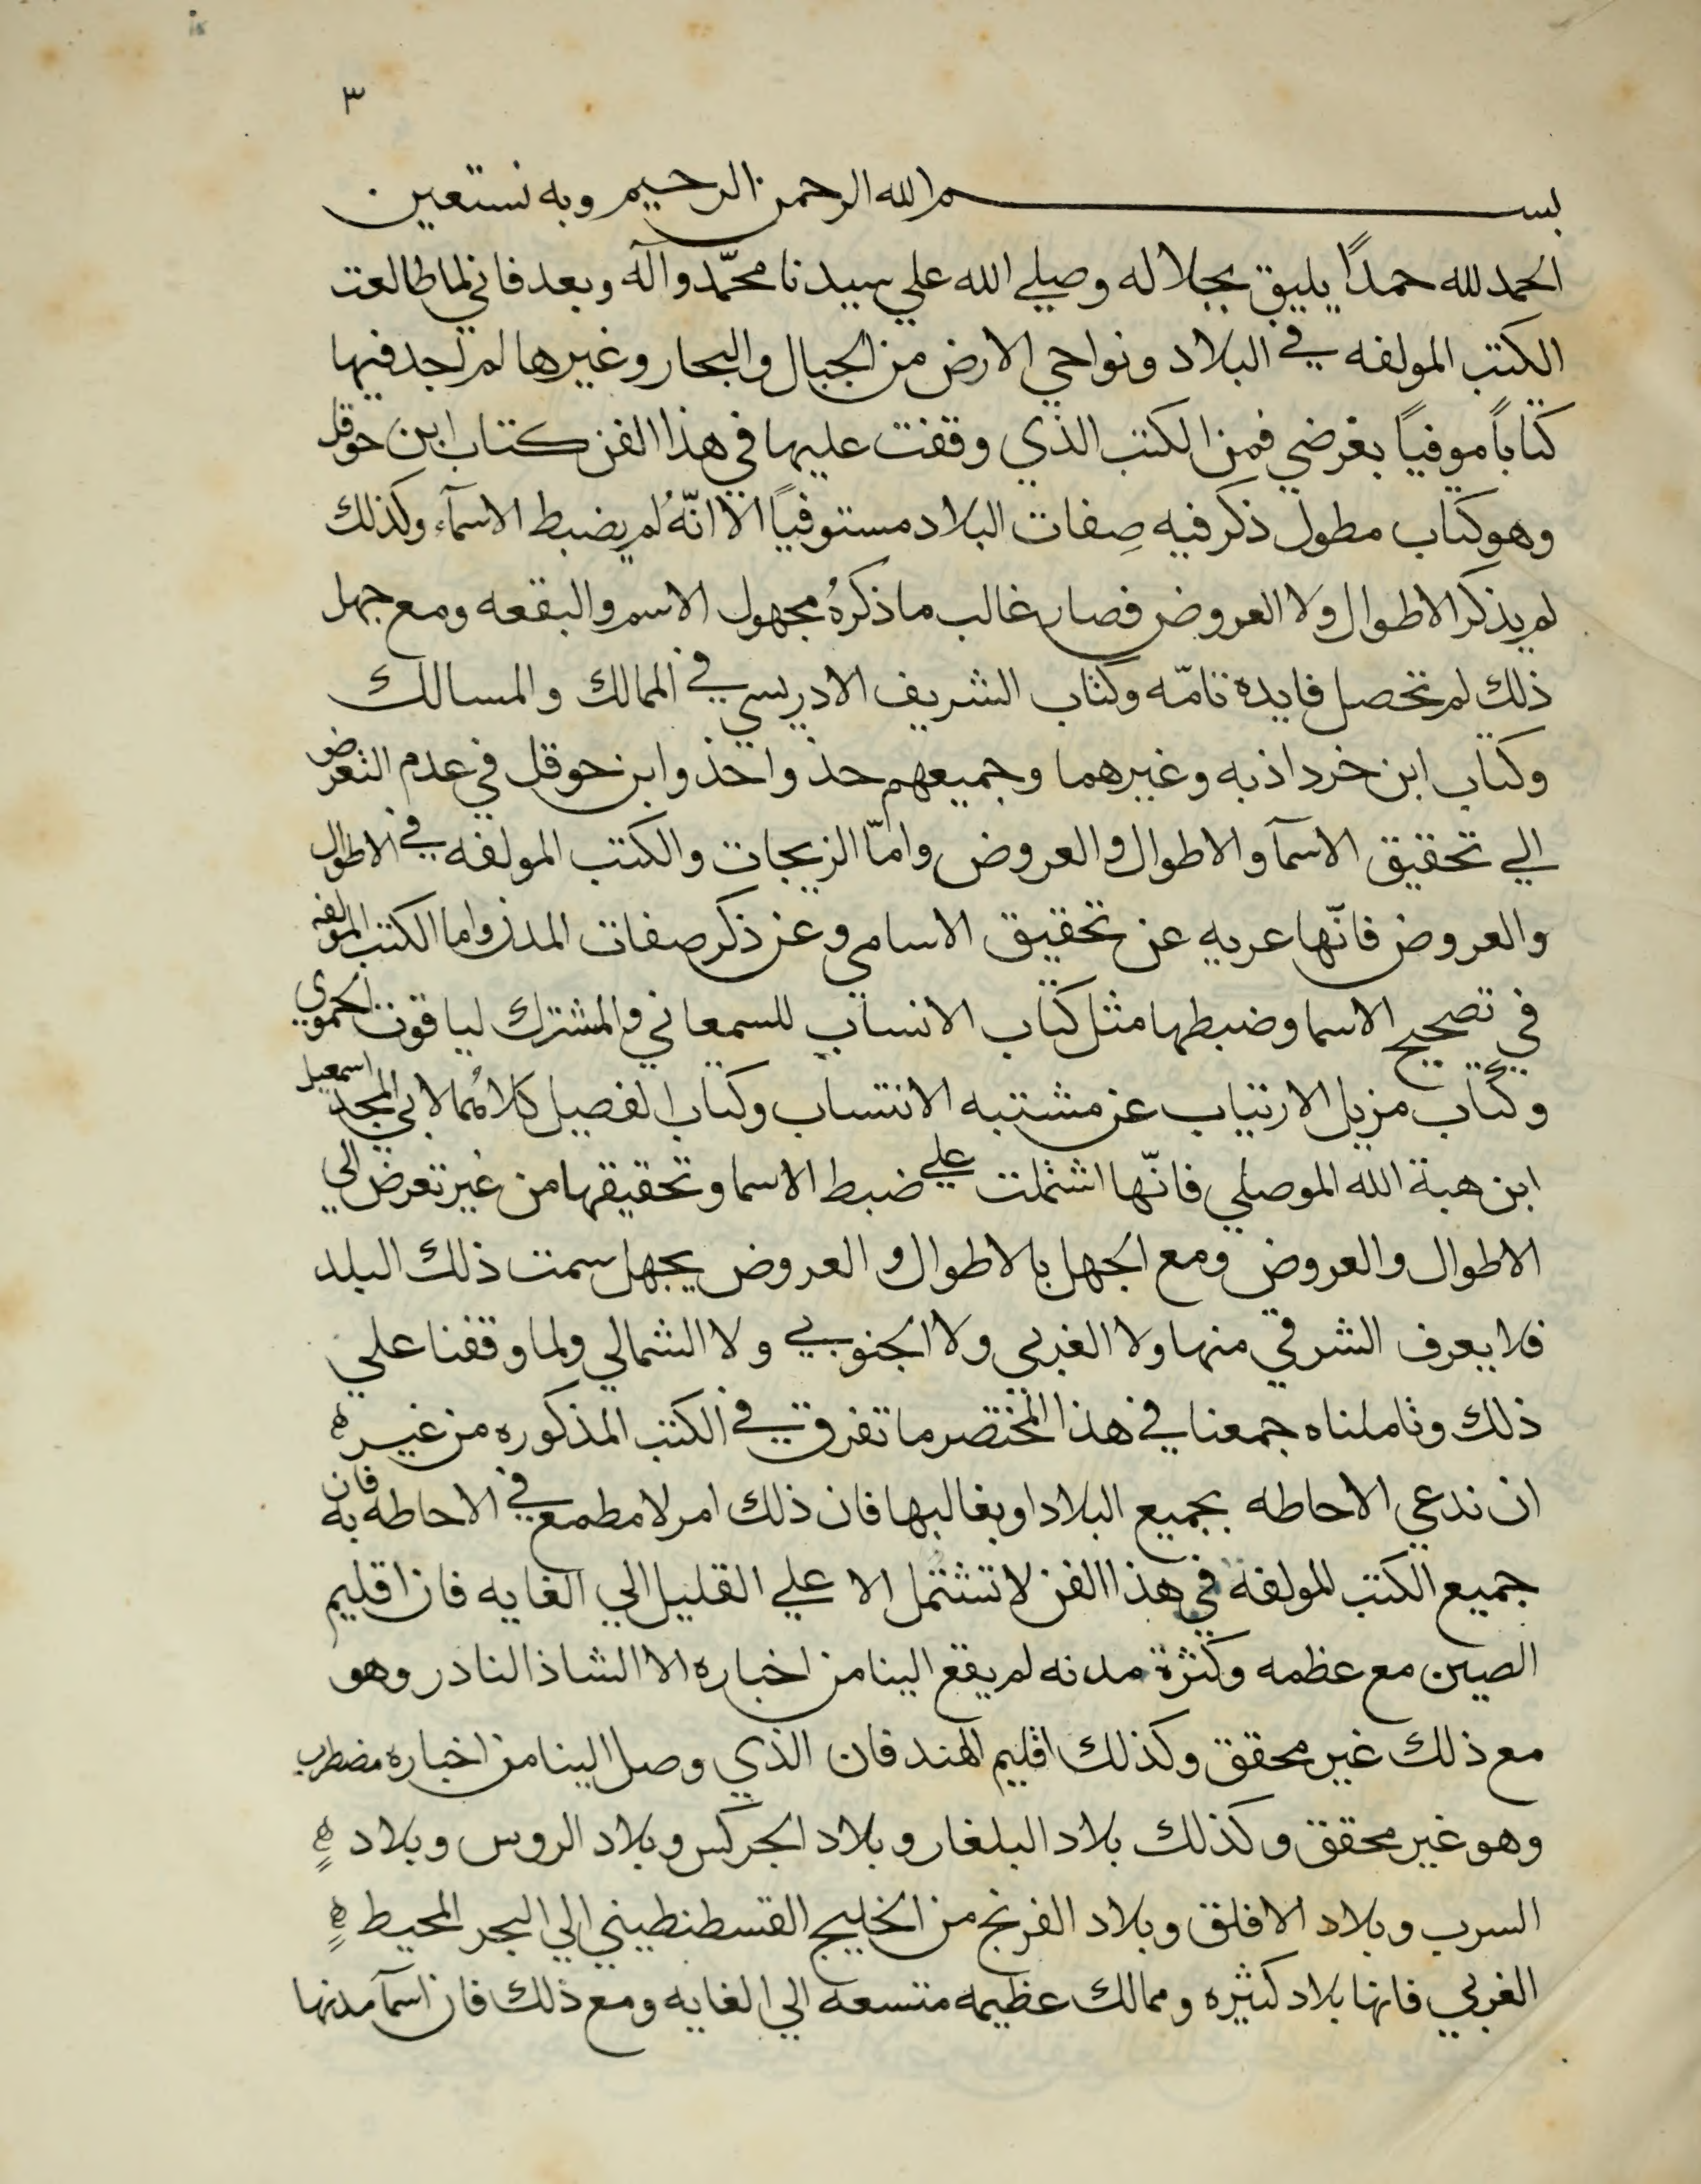 ٣
بسم الله الرحمن الرحيم وبه نستعين
الحمد لله حمدًا يليق بجلاله وصلي الله علي سيدنا محمّد وآله وبعد فاني لما طالعت
الكتب المولفه في البلاد ونواحي الارض من الجبال والبحار وغيرها لم اجد فيها
كتاباً موفيًا بغرضي فمن الكتب الذي وقفت عليها في هذا الفن كتاب ابن حوقل
وهو كتاب مطول ذكر فيه صِفات البلاد مستوفيًا الا انّهُ لم يضبط الاسمآء وكذلك
لم يذكر الاطوال ولا العروض فصار غالب ما ذكرهُ مجهول الاسم والبقعه ومع جهل
ذلك لم تحصل فايده تامّه وكتاب الشريف الادريسي في الممالك والمسالك
وكتاب ابن خرداذبه وغيرهما وجميعهم حذوا حذو ابن حوقل في عدم التعرض
الي تحقيق الاسمآ والاطوال والعروض وامّا الزيجات والكتب المولفه في الاطوال
والعروض فانّها عريه عن تحقيق الاسامي وعن ذكر صفات المدن واما الكتب المولفه
في تصحيح الاسما وضبطها مثل كتاب الانساب للسمعاني والمشترك لياقوت الحموي
وكتاب مزيل الارتياب عن مشتبه الانتساب وكتاب الفصيل كلاهُما لابي المجد اسمعيل
ابن هبة الله الموصلي فانّها اشتملت علي ضبط الاسما وتحقيقها من غير تعرض الي
الاطوال والعروض ومع الجهل بالاطوال والعروض يجهل سمت ذلك البلد
فلا يعرف الشرقي منها ولا الغربي ولا الجنوبي ولا الشمالي ولما وقفنا علي
ذلك وتاملناه جمعنا في هذا المختصر ما تفرق في الكتب المذكوره من غير ه
ان ندعي الاحاطه بجميع البلاد او بغالبها فان ذلك امر لا مطمع في الاحاطه به فان
جميع الكتب المولفة في هذا الفن لا تشتمل الا علي القليل الي الغايه فان اقليم
الصين مع عظمه وكثرة مدنه لم يقع الينا من اخباره الا الشاذ النادر وهو
مع ذلك غير محقق وكذلك اقليم الهند فان الذي وصل الينا من اخباره مضطرب
وهو غير محقق وكذلك بلاد البلغار وبلاد الجركس وبلاد الروس وبلاد ه
السرب وبلاد الافلق وبلاد الفرنج من الخليج القسطنطيني الي البحر المحيط ه
الغربي فانها بلاد كثيره وممالك عظيمه متسعه الي الغايه ومع ذلك فان اسمآ مدنها